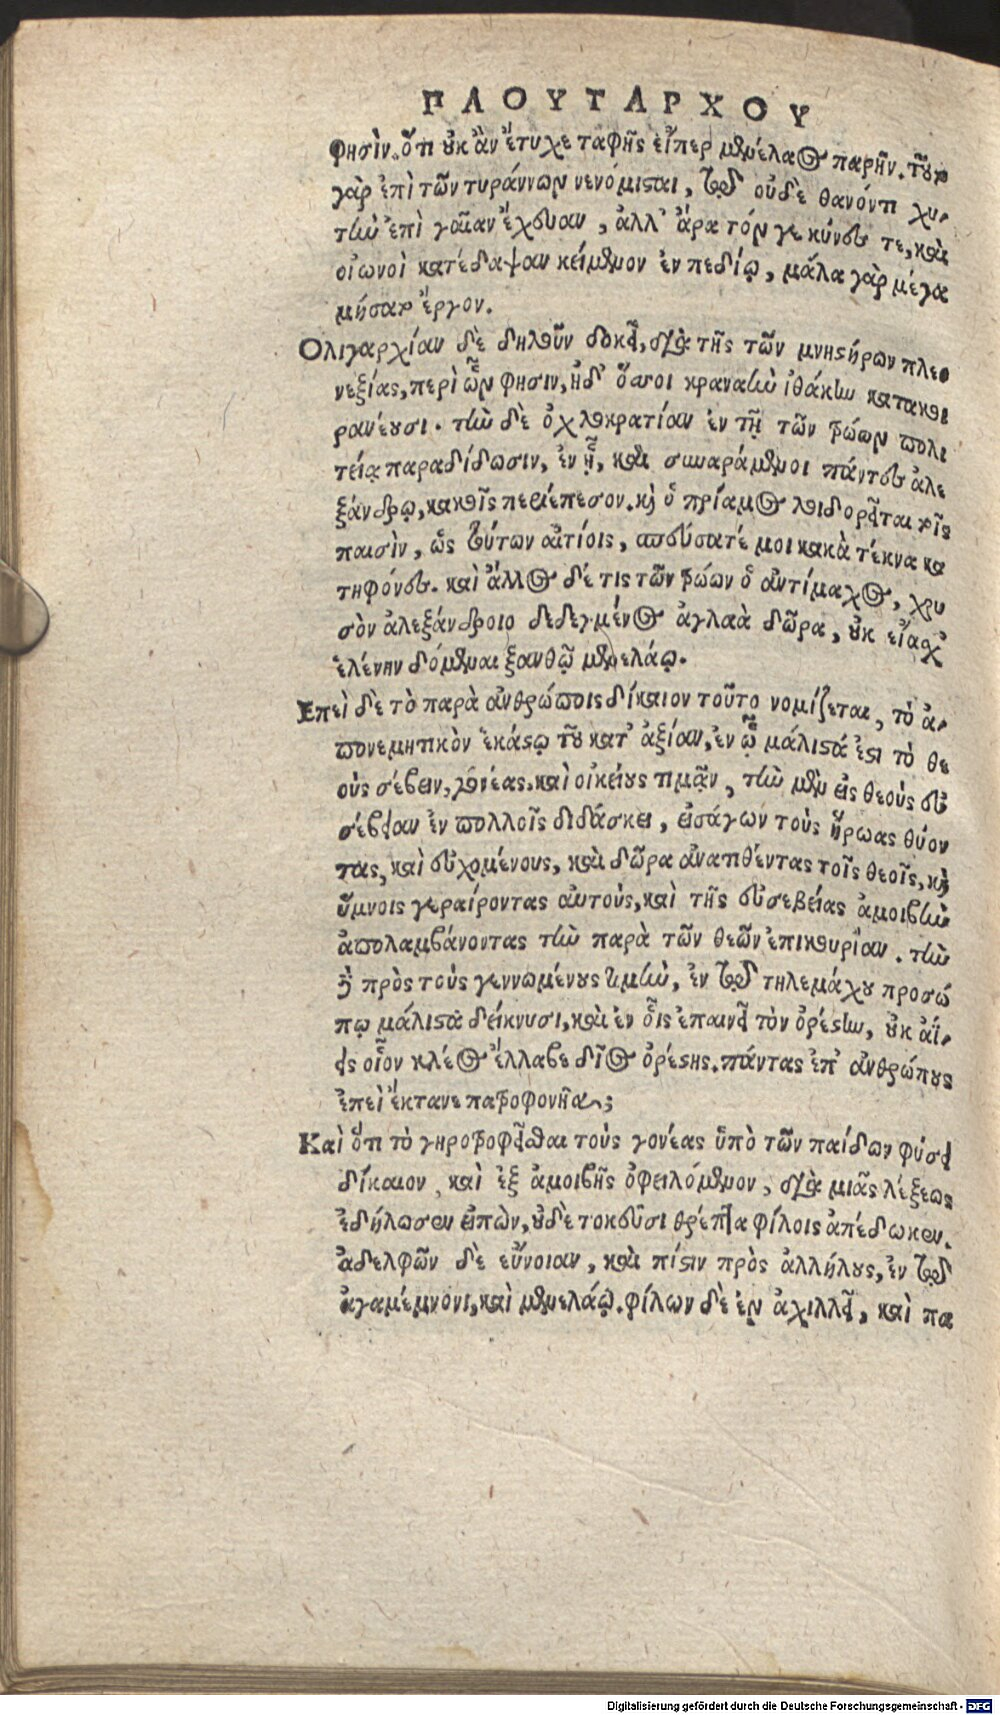 ΠΛΟΥΤΑΡΧΟΥ
φησὶν. ὅτι οὐκ ἂν ἔτυχε ταφῆς εἴπερ μενέλαος παρῆν. τοῦτο
γὰρ ἐπὶ τῶν τυράννων νενόμισται, τῷ οὐδὲ θανόντι χυ-
τὴν ἐπὶ γαῖαν ἔχευαν, ἀλλ' ἄρα τόν γε κύνες τε, καὶ
οἰωνοὶ κατέδαψαν κείμενον ἐν πεδίῳ, μάλα γὰρ μέγα
μήσατο ἔργον.
Ολιγαρχίαν δὲ δηλοῦν δοκεῖ, διὰ τῆς τῶν μνηστήρων πλεο
νεξίας, περὶ ὧν φησιν, ἠδ' ὅσσοι κραναὴν ἰθάκην κατακοι
ρανέουσι. τὴν δὲ ὀχλοκρατίαν ἐν τῇ τῶν τρώων πολι
τείᾳ παραδίδωσιν, ἐν ᾗ, καὶ συναράμενοι πάντες ἀλε
ξάνδρῳ, κακοῖς περιέπεσον. καὶ ὁ πρίαμος λοιδορεῖται τοῖς
παισὶν, ὡς τούτων αἰτίοις, σπεύσατέ μοι κακὰ τέκνα κα
τηφόνες. καὶ ἄλλος δέ τις τῶν τρώων ὁ ἀντίμαχος, χρυ
σὸν ἀλεξάνδροιο δεδεγμένος ἀγλαὰ δῶρα, οὐκ εἴασχ'
ἑλένην δόμεναι ξανθῷ μενελάῳ.
Επεὶ δὲ τὸ παρὰ ἀνθρώποις δίκαιον τοῦτο νομίζεται, τὸ ἀ-
πονεμητικὸν ἑκάστῳ τοῦ κατ' ἀξίαν, ἐν ᾧ μάλιστά ἐστι τὸ θε
οὺς σέβειν, γονέας. καὶ οἰκείους τιμᾶν, τὴν μὲν εἰς θεοὺς εὐ
σέβειαν ἐν πολλοῖς διδάσκει, εἰσάγων τοὺς ἥρωας θύον
τας, καὶ εὐχομένους, καὶ δῶρα ἀνατιθέντας τοῖς θεοῖς, καὶ
ὕμνοις γεραίροντας αὐτοὺς, καὶ τῆς εὐσεβείας ἀμοιβὴν
ἀπολαμβάνοντας τὴν παρὰ τῶν θεῶν ἐπικουρίαν. τὴν
δὲ πρὸς τοὺς γεννωμένους τιμὴν, ἐν τῷ τηλεμάχου προσώ
πῳ μάλιστα δείκνυσι, καὶ ἐν οἷς ἐπαινεῖ τὸν ὀρέστην, οὐκ ἀΐ-
εις οἷον κλέος ἔλλαβε δῖος ὀρέστης. πάντας ἐπ' ἀνθρώπους
ἐπεὶ ἔκτανε πατροφονῆα;
Καὶ ὅτι τὸ γηροτροφεῖσθαι τοὺς γονέας ὑπὸ τῶν παίδων φύσει
δίκαιον, καὶ ἐξ ἀμοιβῆς ὀφειλόμενον, διὰ μιᾶς λέξεως
ἐδήλωσεν εἰπὼν, οὐδὲ τοκεῦσι θρέπτα φίλοις ἀπέδωκεν.
ἀδελφῶν δὲ εὔνοιαν, καὶ πίστιν πρὸς ἀλλήλους, ἐν τῷ
ἀγαμέμνονι, καὶ μενελάῳ. φίλων δὲ ἐν ἀχιλλεῖ, καὶ πα
Digitalisierung gefördert durch die Deutsche Forschungsgemeinschaft - DFG